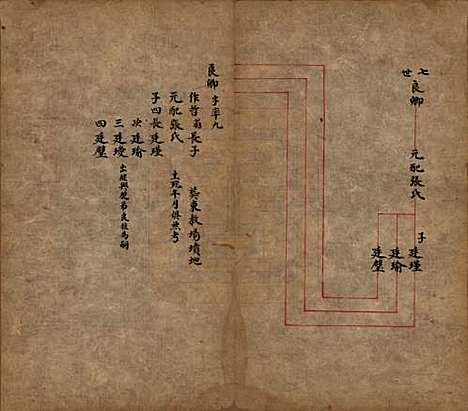 七世
良卿
元配張氏
子
廷瑾
廷瑜
廷璧
良卿 字率九
作哲翁長子
元配張氏 葬東教場墳地
子四長廷瑾 生殁年月俱無考
次廷瑜
三廷璦 出繼與堂弟良枝為嗣
四廷璧